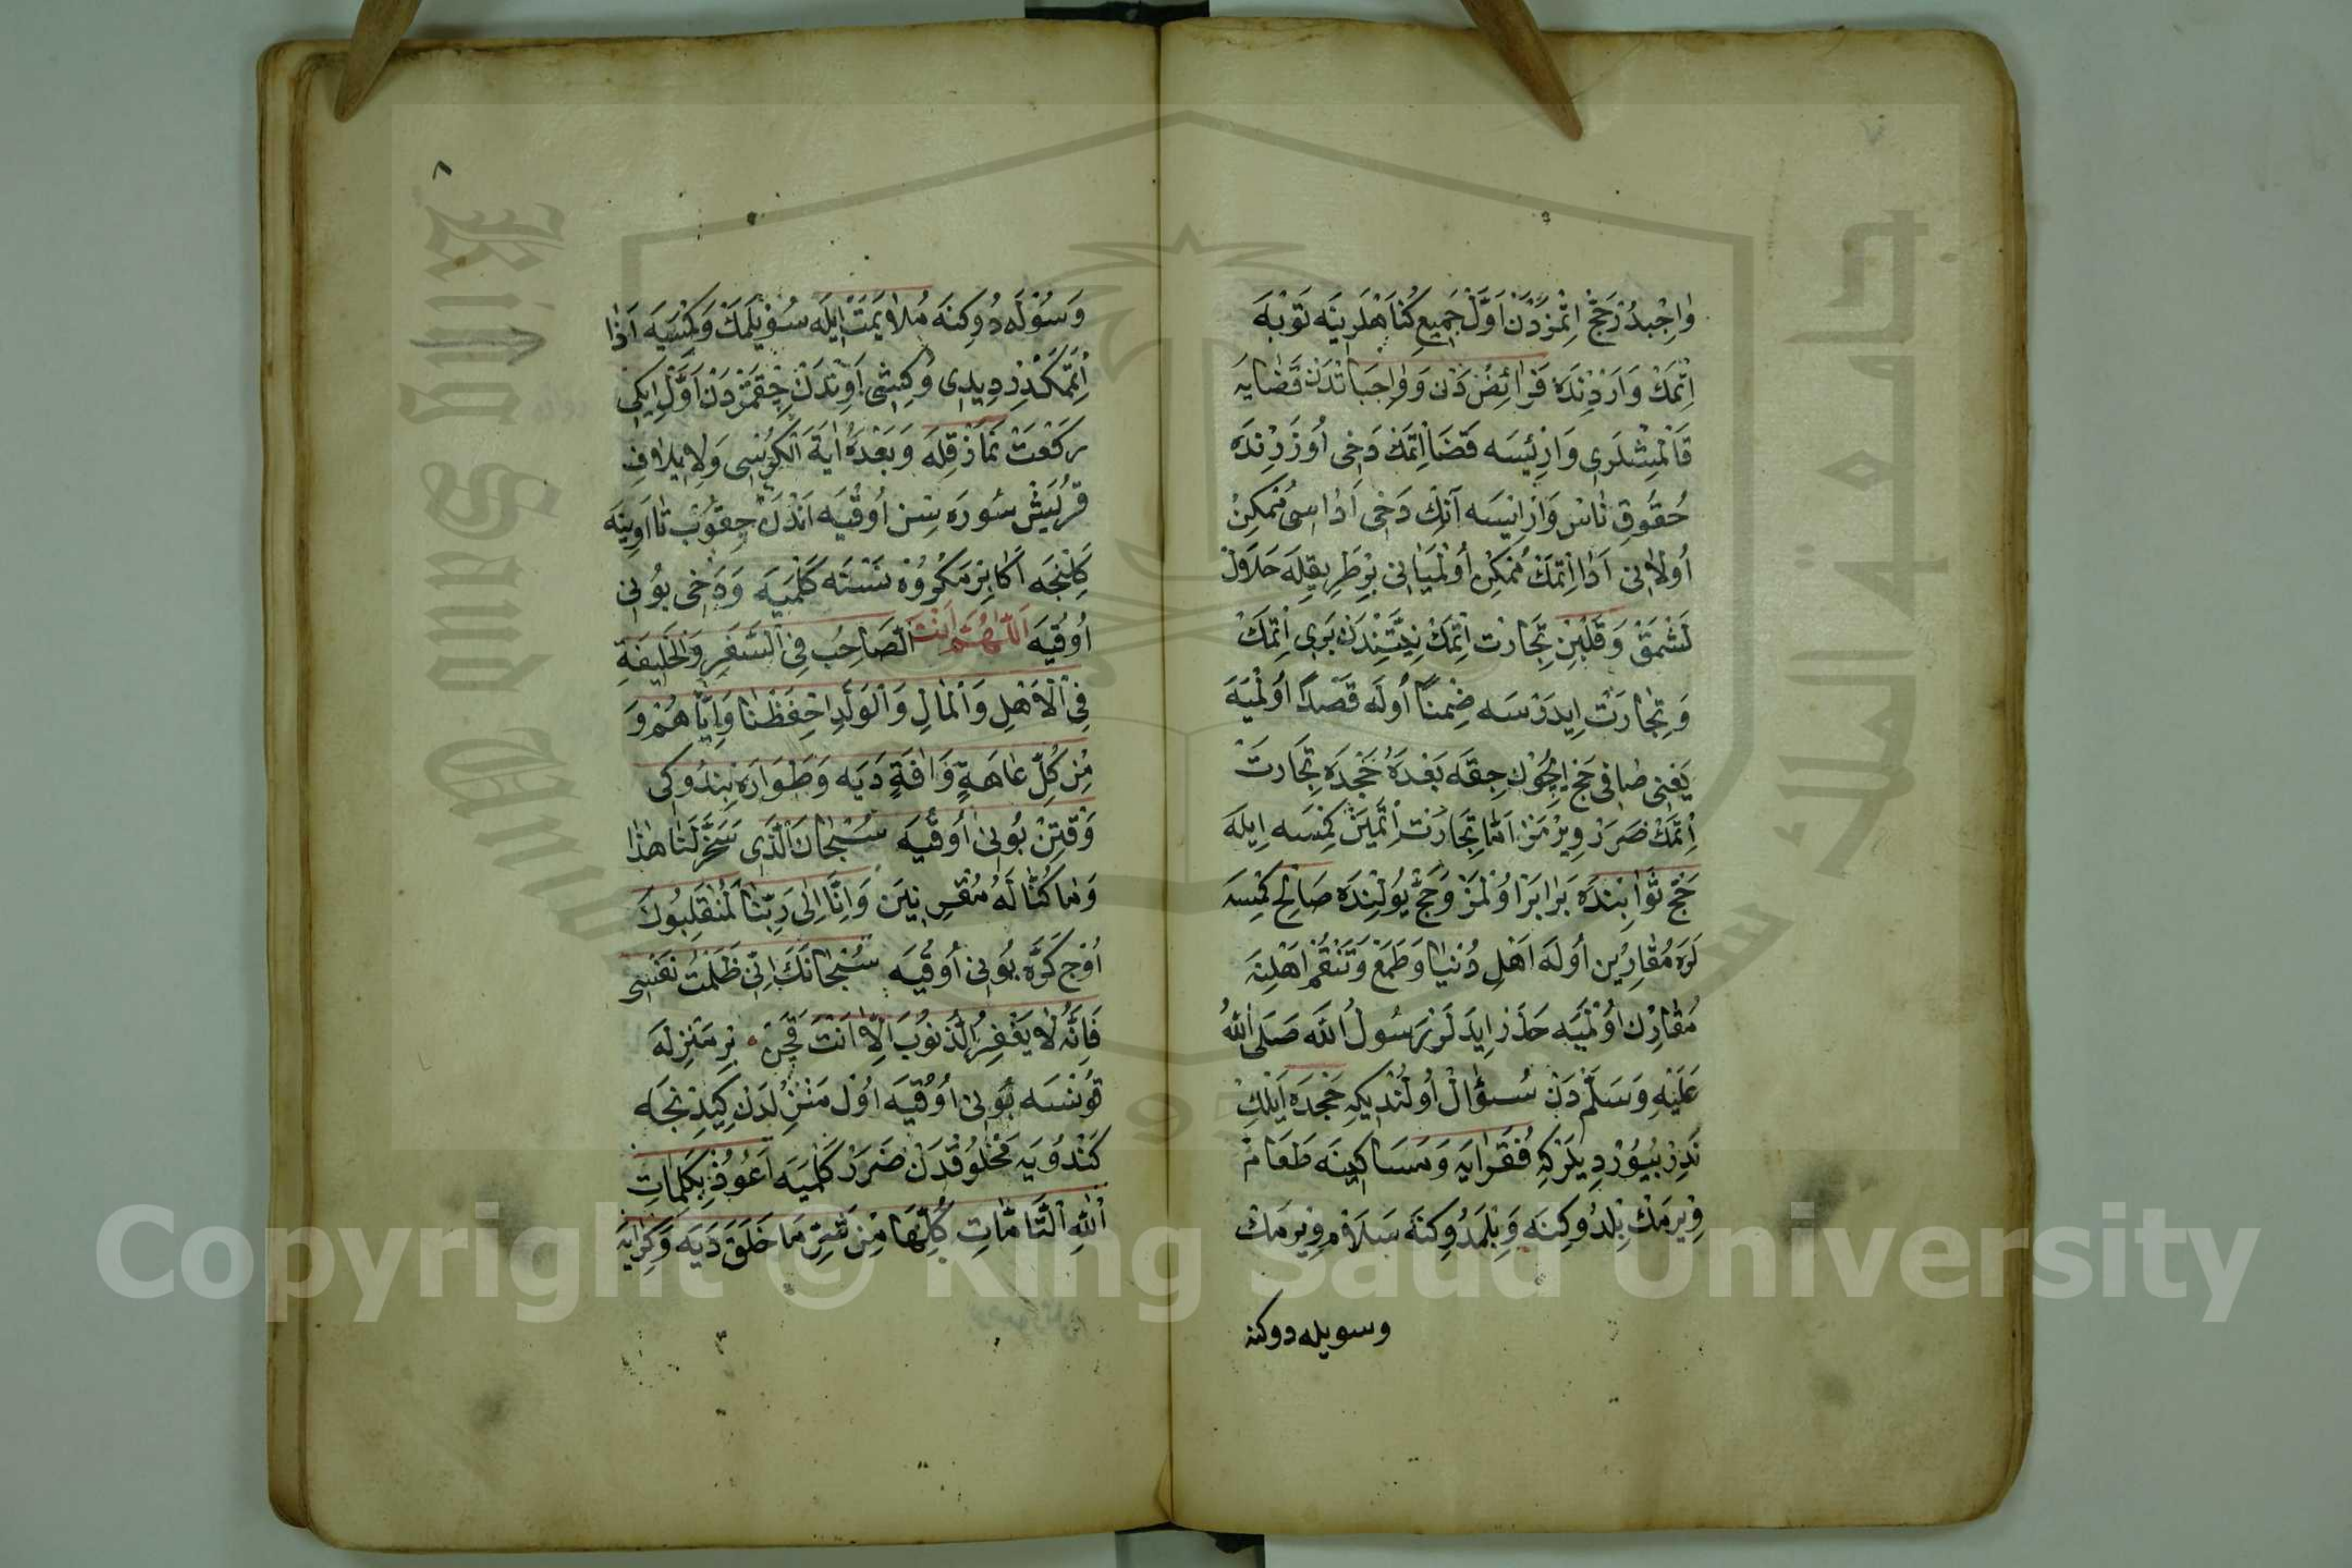 وَاجِبْدُرْ حَجّ اِتْمَزْدَنْ اَوَّلْ جَمِيعِ كُنَاهْلَرِينَه تَوْبَه
اِتْمَكْ وَارَدِنْدَه فَرَائِضْ دَنْ وَوَاجِبَاتْدَنْ قَضَايَه
قَالْمِشْلَرِى وَارِيْسَه قَضَا اِتْمَكْ دَخِى اُوزَرِنْدَه
حُقُوقِ نَاسْ وَارَايْسَه آنِكْ دَخِى اَدَاسِى مُمْكِنْ
اُولَانِى اَدَا اِتْمَكْ مُمْكِنْ اُولْمَيَانِى بِرْ طَرِيقِلَه حَلَالْ
لَشْمَقْ وَقَلْبِنْ تِجَارَتْ اِتْمَكْ نِيَّتِنْدَنْ بَرِى اِتْمَكْ
وَتِجَارَتْ اِيدَرْسَه ضِمْنًا اُولَه قَصْدًا اُولْمَيَه
يَعْنِى صَافِى حَجّ اِيچُونْ چِقَه بَعْدَهُ حَجْدَه تِجَارَتْ
اِتْمَكْ ضَرَرْ وِيرْمَزْ اَمَّا تِجَارَتْ اِتْمَيَنْ كِمْسَه اِيلَه
حَجّ ثَوَابِنْدَه بَرَابَرْ اُولْمَزْ وَحَجّ يُولِنْدَه صَالِحْ كِمْسَه
لَرَه مُقَارِينْ اُولَه اَهْلِ دُنْيَا وَطَمَعْ وَتَنَعُّمْ اَهْلِنَه
مُقَارِنْ اُولْمَيَه حَذَرْ اِيدَه لَرْ رَسُولُ اللّٰه صَلَى اللّٰهُ
عَلَيْهِ وَسَلَّمْ دَنْ سُؤَالْ اُولُنْدِيكِه حَجْدَه اَيْلِكْ
نَدِرْ بُيُورْدِيلَرْكِه فُقَرَايَه وَمَسَاكِينَه طَعَامْ
وِيرْمَكْ بِلْدُوكِنَه وَبِلْمَدُوكِنَه سَلَامْ وِيرْمَكْ
وسويله دوكنه
٨
وَسُوْلَه دُوكِنَه مُلَايَمَتْ اِيلَه سُويْلَمَكْ وَكِمْسَيَه اَذَا
اِتْمَمَكْدِرْ دِيدِى وَكِشِى اَوِنْدَنْ چِقْمَزْدَنْ اَوَّلْ اِيكِى
رَكْعَتْ نَمَازْ قِلَه وَبَعْدَهُ اٰيَةَ الْكُرْسِى وَلِايلَافِ
قُرَيْشْ سُورَه سِنْ اُوقُيَه اَنْدَنْ چِقُوبْ تَا اَوِينَه
كَلِنْجَه اَكَا بِرْ مَكْرُوهْ نَسْنَه كَلْمَيَه وَدَخِى بُونِى
اُوقُيَه اَللّٰهُمَّ اَنْتَ الصَّاحِبُ فِى السَّفَرِ وَالْخَلِيفَةِ
فِى الْاَهْلِ وَالْمَالِ وَالْوَلَدِ اِحْفَظْنَا وَاِيَّاهُمْ وَ
مِنْ كُلِّ عَاهَةٍ وَاٰفَةٍ دَيَه وَطَوَارَه بِنْدُوكِى
وَقْتِنْ بُونِى اُوقُيَه سُبْحَانَ الَّذِى سَخَّرَ لَنَا هٰذَا
وَمَا كُنَّا لَهُ مُقْرِنِينَ وَاِنَّا اِلٰى رَبِّنَا لَمُنْقَلِبُونَ
اُوچ كَرَّه بُونِى اُوقُيَه سُبْحَانَكَ اِنِّى ظَلَمْتُ نَفْسِى
فَاِنَّهُ لَا يَغْفِرُ الذُّنُوبَ اِلَّا اَنْتَ قَچَنْ بِرْ مَنْزِلَه
قُونْسَه بُونِى اُوقُيَه اُولْ مَنْزِلْدَنْ كِيدِنْجَه
كَنْدُويَه مَخْلُوقْدَنْ ضَرَرْ كَلْمَيَه اَعُوذُ بِكَلِمَاتِ
اللّٰهِ التَّامَّاتِ كُلِّهَا مِنْ شَرِّ مَا خَلَقَ دَيَه وَكِرَايَه